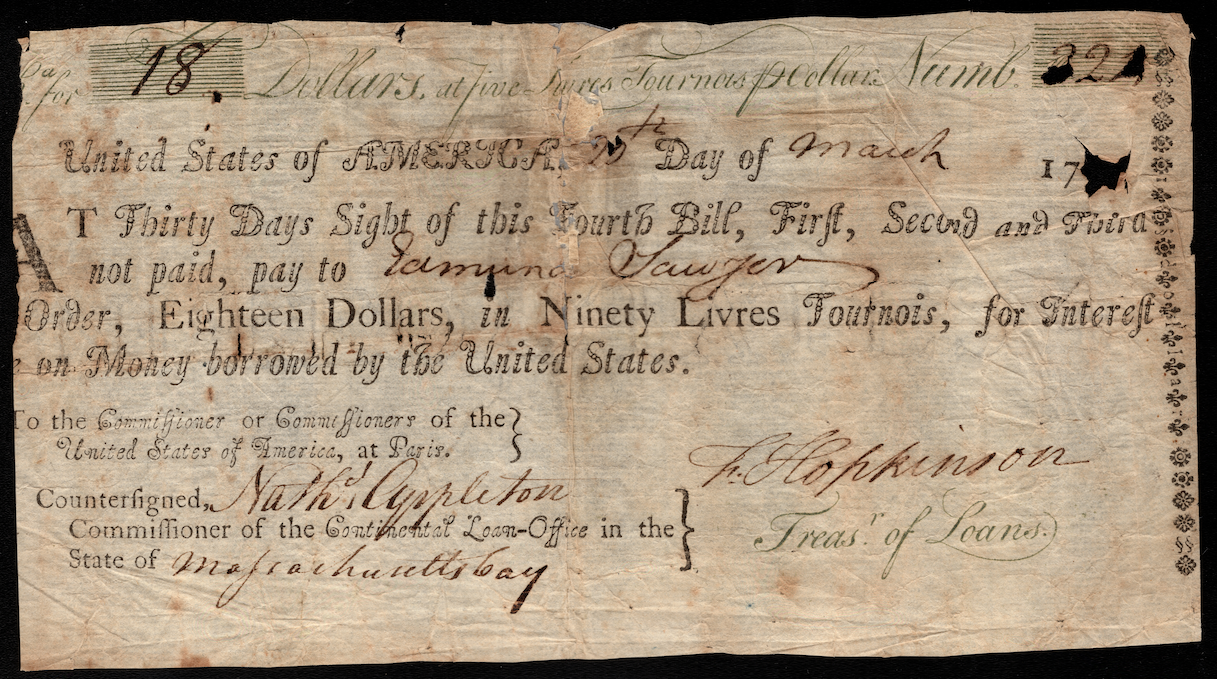 for 18. Dollars, at five Livres Tournois ℔ Dollar. Numb.
United States of AMERICA, Day of March 17
AT Thirty Days Sight of this Fourth Bill, Firſt, Second and Third
not paid, pay to Edmund Sawyer
Order, Eighteen Dollars, in Ninety Livres Tournois, for Intereſt
e on Money borrowed by the United States.
To the Commiſſioner or Commiſſioners of the
United States of America, at Paris.
F. Hopkinson
Treasr. of Loans.
Counterſigned, Nathl. Appleton
Commiſſioner of the Continental Loan-Office in the
State of Maſsachusettsbay